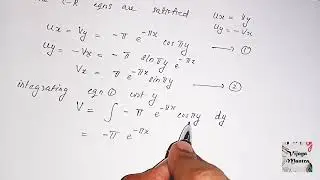 C-R eqns are satisfied
Ux = Vy
Uy = -Vx
Ux = Vy = -π e^-πx cos πy → ①
Uy = -Vx = -π sin πy e^-πx
Vx = π e^-πx sin πy → ②
integrating eqn ① wrt y
V = ∫ -π e^-πx cos πy dy
= -π e^-πx